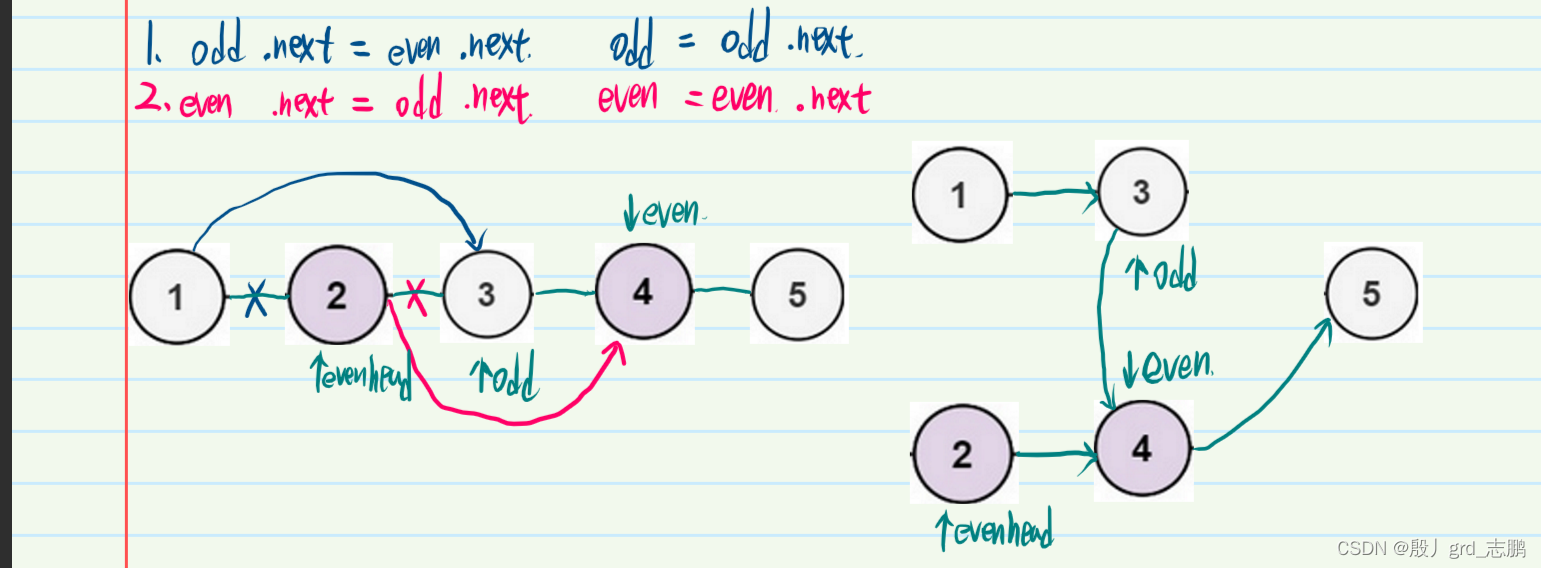 1. odd .next = even .next. odd = odd .next.
2. even .next = odd .next. even = even .next
↓even.
1 2 3 4 5
↑evenhead ↑odd
1 3
↑odd
5
↓even.
2 4
↑evenhead
CSDN @殷丿grd_志鹏